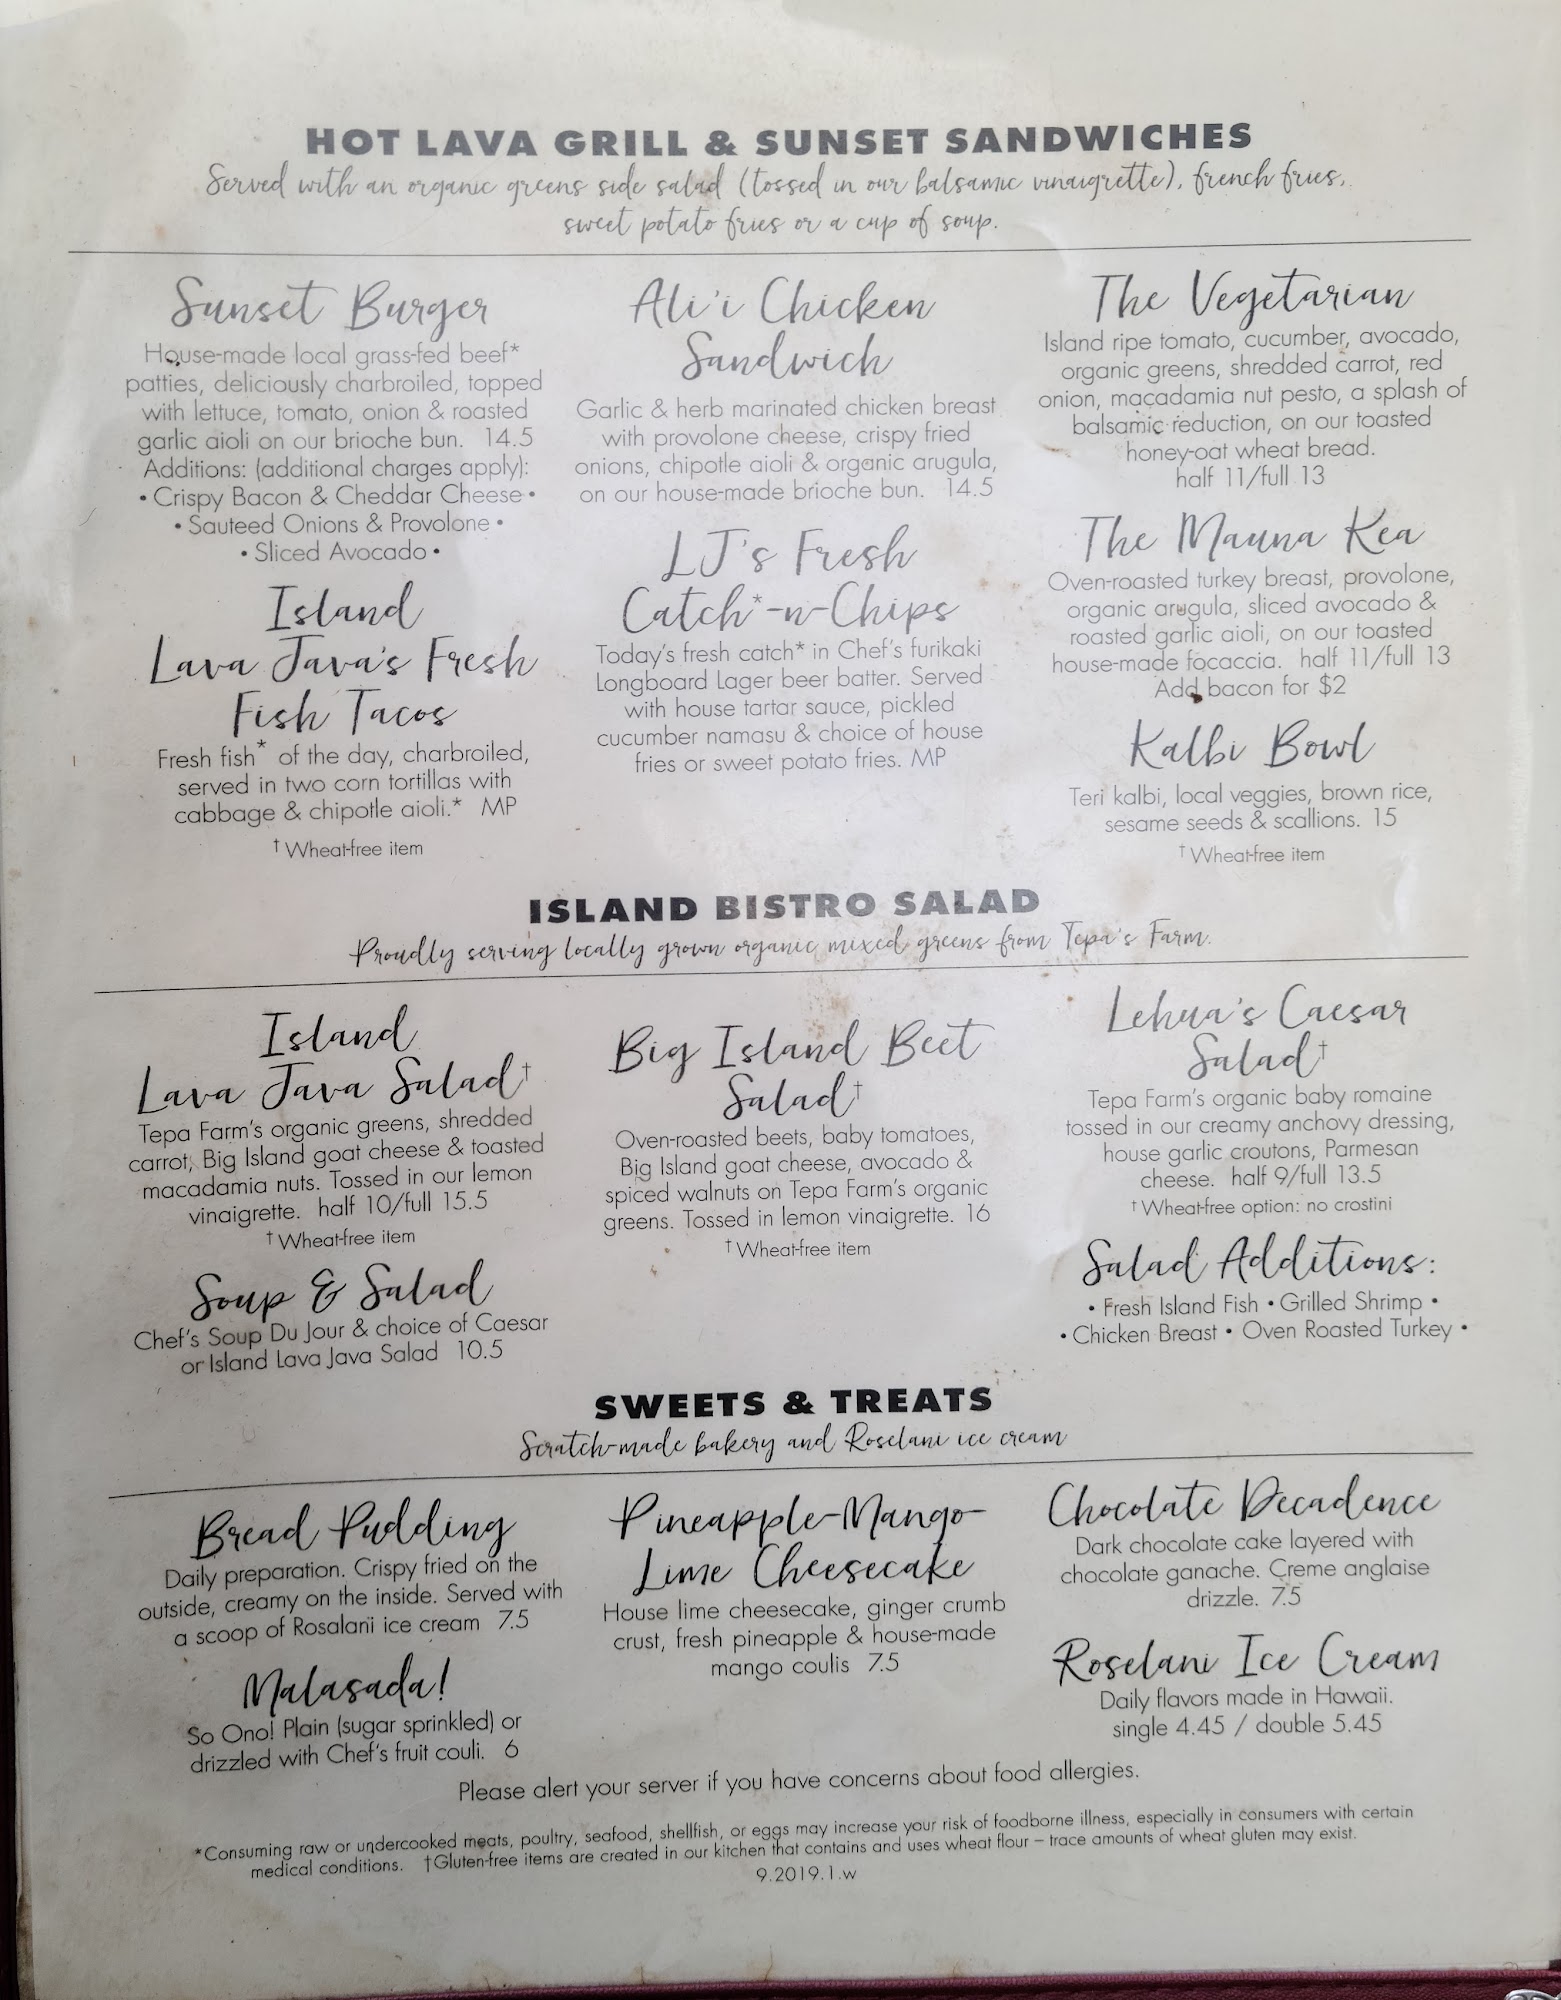 HOT LAVA GRILL & SUNSET SANDWICHES
Served with an organic greens side salad (tossed in our balsamic vinaigrette), french fries,
sweet potato fries or a cup of soup.
Sunset Burger
House-made local grass-fed beef*
patties, deliciously charbroiled, topped
with lettuce, tomato, onion & roasted
garlic aioli on our brioche bun. 14.5
Additions: (additional charges apply):
• Crispy Bacon & Cheddar Cheese •
• Sauteed Onions & Provolone •
• Sliced Avocado •
Island
Lava Java's Fresh
Fish Tacos
Fresh fish* of the day, charbroiled,
served in two corn tortillas with
cabbage & chipotle aioli.* MP
† Wheat-free item
Ali'i Chicken
Sandwich
Garlic & herb marinated chicken breast
with provolone cheese, crispy fried
onions, chipotle aioli & organic arugula,
on our house-made brioche bun. 14.5
LJ's Fresh
Catch*-n-Chips
Today's fresh catch* in Chef's furikaki
Longboard Lager beer batter. Served
with house tartar sauce, pickled
cucumber namasu & choice of house
fries or sweet potato fries. MP
The Vegetarian
Island ripe tomato, cucumber, avocado,
organic greens, shredded carrot, red
onion, macadamia nut pesto, a splash of
balsamic reduction, on our toasted
honey-oat wheat bread.
half 11/full 13
The Mauna Kea
Oven-roasted turkey breast, provolone,
organic arugula, sliced avocado &
roasted garlic aioli, on our toasted
house-made focaccia. half 11/full 13
Add bacon for $2
Kalbi Bowl
Teri kalbi, local veggies, brown rice,
sesame seeds & scallions. 15
† Wheat-free item
ISLAND BISTRO SALAD
Proudly serving locally grown organic mixed greens from Tepa's Farm.
Island
Lava Java Salad†
Tepa Farm's organic greens, shredded
carrot, Big Island goat cheese & toasted
macadamia nuts. Tossed in our lemon
vinaigrette. half 10/full 15.5
† Wheat-free item
Soup & Salad
Chef's Soup Du Jour & choice of Caesar
or Island Lava Java Salad 10.5
Big Island Beet
Salad†
Oven-roasted beets, baby tomatoes,
Big Island goat cheese, avocado &
spiced walnuts on Tepa Farm's organic
greens. Tossed in lemon vinaigrette. 16
† Wheat-free item
Lehua's Caesar
Salad†
Tepa Farm's organic baby romaine
tossed in our creamy anchovy dressing,
house garlic croutons, Parmesan
cheese. half 9/full 13.5
† Wheat-free option: no crostini
Salad Additions:
• Fresh Island Fish • Grilled Shrimp •
• Chicken Breast • Oven Roasted Turkey •
SWEETS & TREATS
Scratch-made bakery and Roselani ice cream
Bread Pudding
Daily preparation. Crispy fried on the
outside, creamy on the inside. Served with
a scoop of Rosalani ice cream 7.5
Malasada!
So Ono! Plain (sugar sprinkled) or
drizzled with Chef's fruit couli. 6
Pineapple-Mango-
Lime Cheesecake
House lime cheesecake, ginger crumb
crust, fresh pineapple & house-made
mango coulis 7.5
Chocolate Decadence
Dark chocolate cake layered with
chocolate ganache. Creme anglaise
drizzle. 7.5
Roselani Ice Cream
Daily flavors made in Hawaii.
single 4.45 / double 5.45
Please alert your server if you have concerns about food allergies.
*Consuming raw or undercooked meats, poultry, seafood, shellfish, or eggs may increase your risk of foodborne illness, especially in consumers with certain
medical conditions. †Gluten-free items are created in our kitchen that contains and uses wheat flour – trace amounts of wheat gluten may exist.
9.2019.1.w